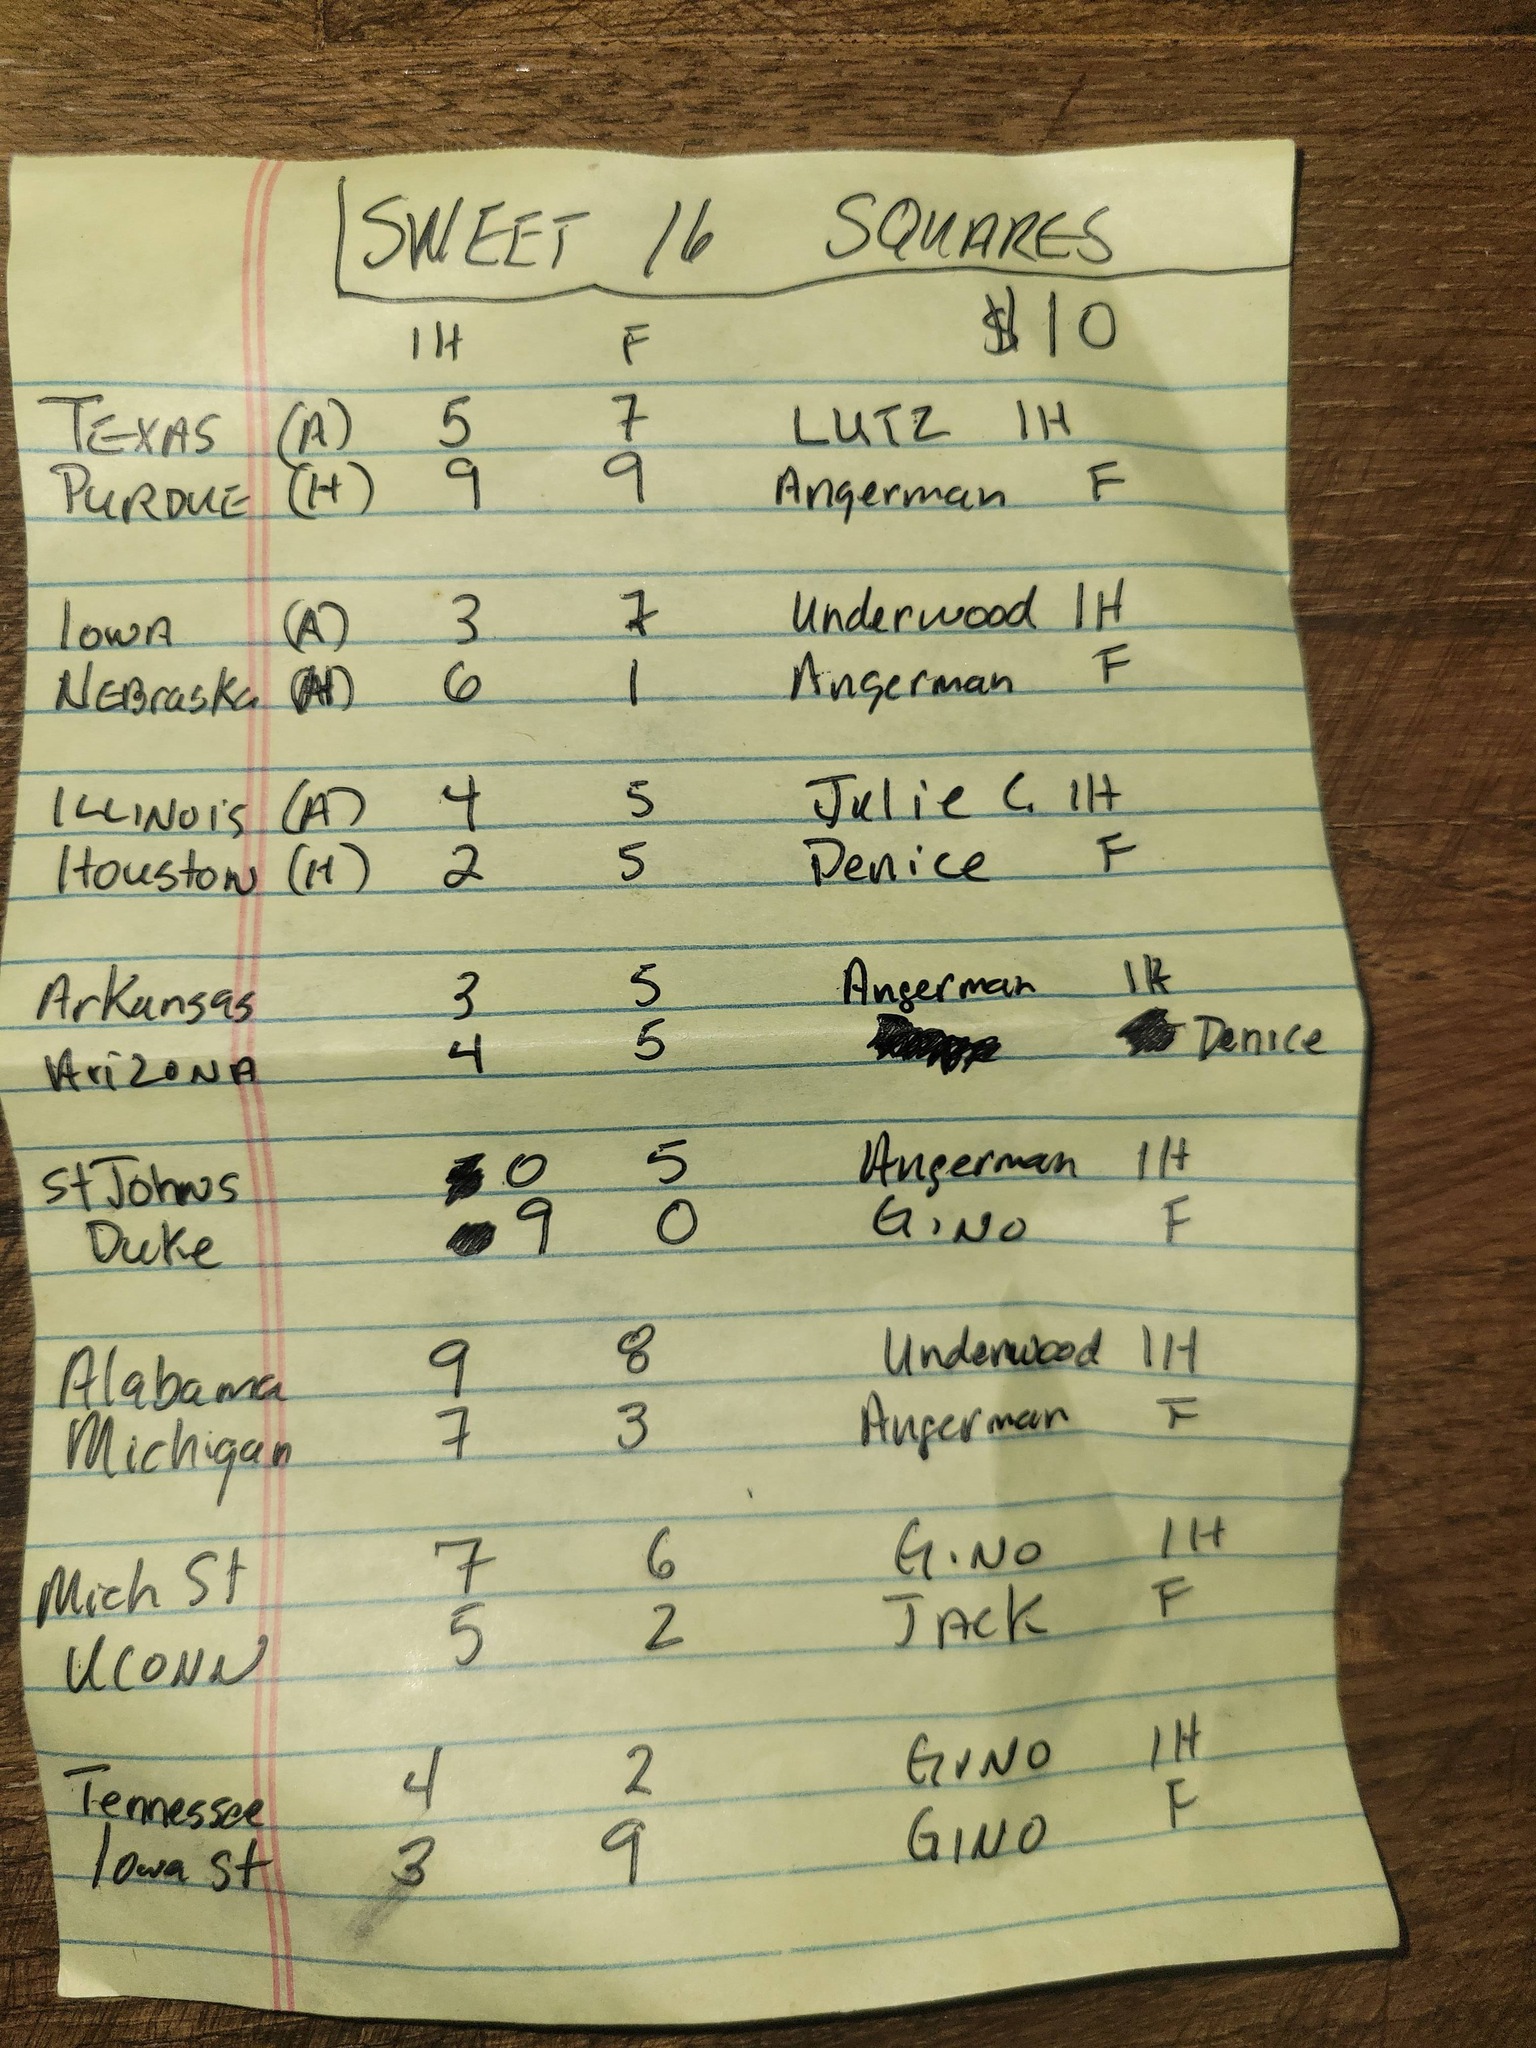 SWEET 16 SQUARES
1H F $10
TEXAS (A) 5 7 LUTZ 1H
PURDUE (H) 9 9 Angerman F
IOWA (A) 3 7 Underwood 1H
NEBraska (H) 6 1 Angerman F
ILLINOIS (A) 4 5 Julie C. 1H
Houston (H) 2 5 Denice F
Arkansas 3 5 Angerman 1H
ARIZONA 4 5 Denice
St Johns 0 5 Angerman 1H
Duke 9 0 GiNO F
Alabama 9 8 Underwood 1H
Michigan 7 3 Angerman F
Mich St 7 6 GiNO 1H
UCONN 5 2 JACK F
Tennessee 4 2 GINO 1H
Iowa St 3 9 GINO F